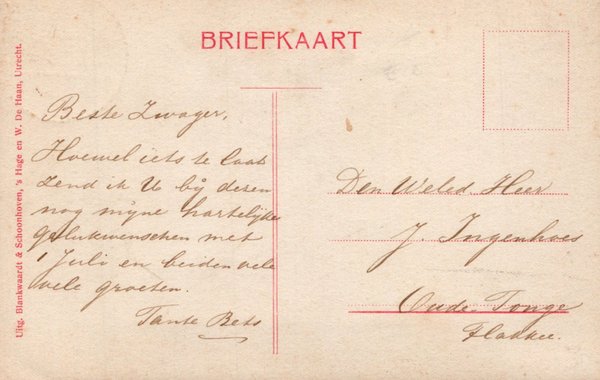 BRIEFKAART
Uitg. Blankwaardt & Schoonhoven, 's Hage en W. De Haan, Utrecht.
Beste Zwager,
Hoewel iets te laat
zend ik U bij dezen
nog mijne hartelijke
gelukwenschen met
1 Juli en beiden vele
vele groeten.
Tante Bets
Den Weled. Heer
J. Ingenhoes
Oude-Tonge
Flakkee.